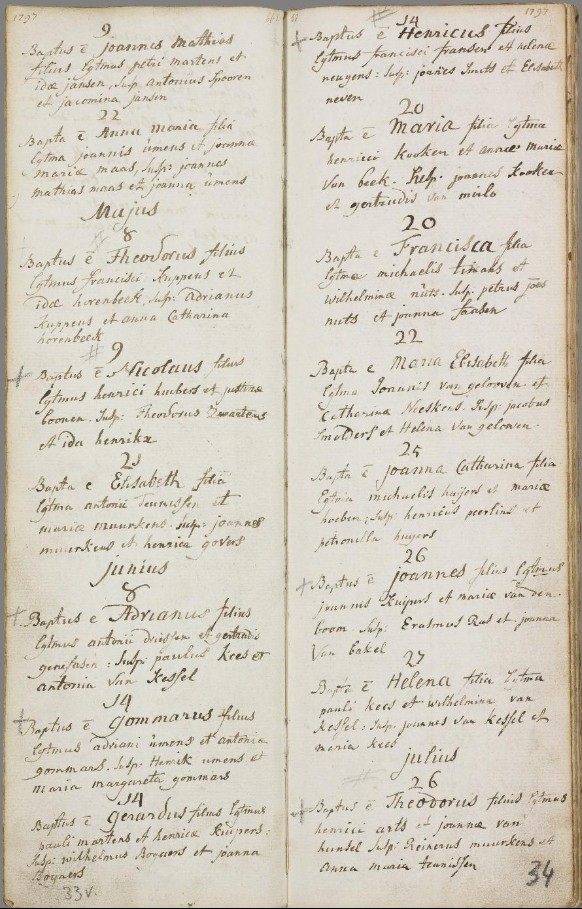 1797
9
Baptus ē joannes mathias
filius lŷtmus petri martens et
idæ jansen, Susp. antonius Spooren
et jacomina jansen
22
Bapta ē Anna maria filia
lŷtma joannis ümens et joannæ
mariæ maas, Susp: joannes
mathias maas et joanna ümens
Majus
8
Baptus ē Theodorus filius
lŷtmus francisci Kuppens et
idæ horenbeek, Susp: adrianus
Kuppens et anna Catharina
horenbeek
#
9
+ Baptus ē Nicolaus filius
lŷtmus henrici huibers et justinæ
boonen. Susp: Theodorus Zwartens
et ida henrikx
23
Bapta e Elisabeth filia
lŷtma antonii teunissen et
mariæ muurkens. Susp: joannes
muurkens et henrica govers
junius
8
+ Baptus e Adrianus filius
lŷtmus antonii driessen et gertrudis
: Susp: paulus Kees et
antonia Van Kessel
14
+ Baptus ē gommarus filius
lŷtmus adriani ümens et antonia
gommars. Susp: Henrik umens et
maria margareta gommars
14
Baptus ē gerardus filius lŷtmus
pauli martens et henricæ Kuipers:
Susp: wilhelmus Bogaers et joanna
Bogaers
33v.
1797
#
14
+ Baptus ē Henricus filius
lŷtmus francisci fransen et helena
neuyens: Susp: joañes Smits et Elisabeth
neven
20
Bapta ē Maria filia lŷtma
henrici Kooken et annæ mariæ
Van beek. Susp: joannes Kooken
et gertrudis Van mirlo
20
Bapta e Francisca filia
lŷtma michaelis timans et
Wilhelminæ nuts. Susp. petrus joēs
nuts et joanna faasen
22
Bapta e Maria Elisabeth filia
lŷtma Joannis Van gelooven et
Catharina Neeskens. Susp: jacobus
Smolders et Helena Van gelooven.
25
Bapta ē joanna Catharina filia
lŷtma michaelis huijers et mariæ
hoeben; Susp: henricus peerlins et
petronella huyers
26
+ Baptus ē joannes filius lŷtmus
joannis Kuijpers et mariæ van den
boom Susp: Erasmus Ras et joanna
Van bakel
27
Bapta ē Helena filia lŷtma
pauli kees et wilhelmina van
Kessel: Susp: joannes Van Kessel et
maria Kees
julius
26
+ Baptus ē Theodorus filius lŷtmus
henrici arts et joannæ van
hunsel Susp: Reinerus muurkens et
Anna maria teunissen
34